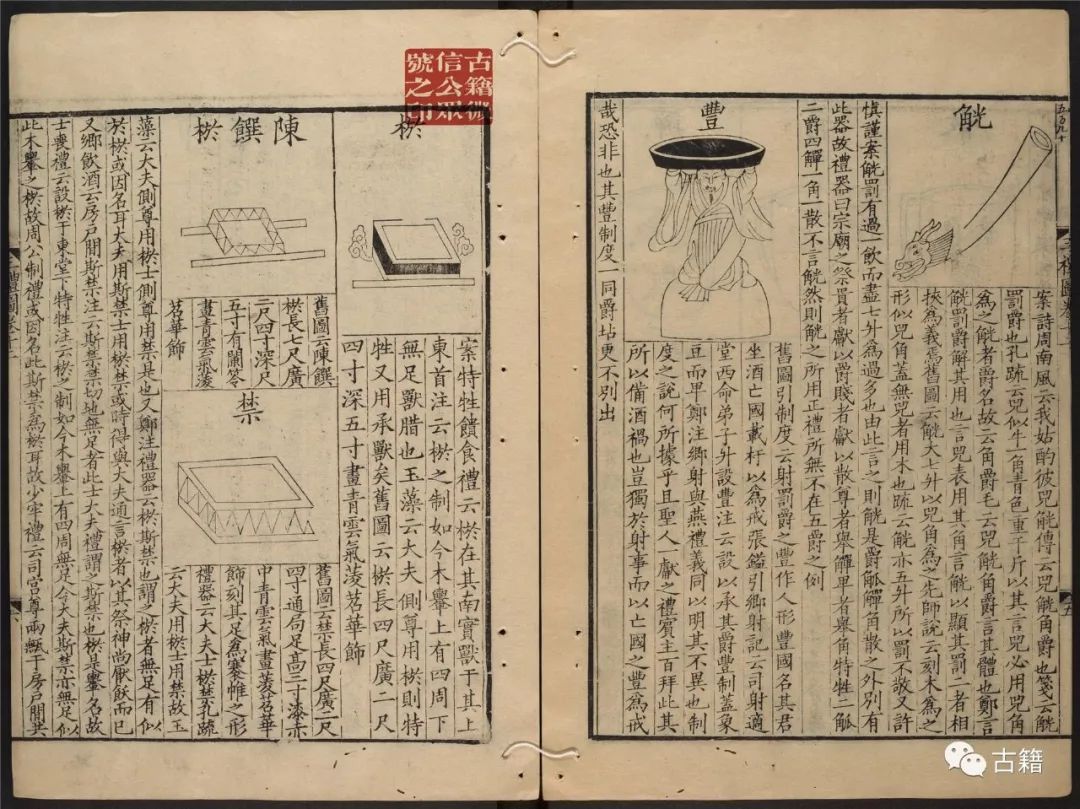 觥
案詩周南風云我姑酌彼兕觥傳云兕觥角爵也箋云觥
罰爵也孔䟽云兕似牛一角青色重千斤以其言兕必用兕角
為之觥者爵名故云角爵毛云兕觥角爵言其體也鄭言
觥罰爵解其用也言兕表用其角言觥以顯其罰二者相
挾為義焉舊圖云觥大七升以兕角為之先師說云刻木為之
形似兕角蓋無兕者用木也䟽云觥亦五升所以罰不敬又許
慎謹案觥罰有過一飲而盡七升為過多也由此言之則觥是爵觚觶角散之外別有
此器故禮器曰宗廟之祭貴者獻以爵賤者獻以散尊者舉觶卑者舉角特牲二觚
二爵四觶一角一散不言觥然則觥之所用正禮所無不在五爵之例
豐
舊圖引制度云射罰爵之豐作人形豐國名其君
坐酒亡國載杅以為戒張鎰引鄉射記云司射適
堂西命弟子升設豐注云設以承其爵豐制蓋象
豆而卑鄭注鄉射與燕禮義同以明其不異也制
度之說何所據乎且聖人一獻之禮賓主百拜此其
所以備酒禍也豈獨於射事而以亡國之豐為戒
哉恐非也其豐制度一同爵坫更不別出
棜
案特牲饋食禮云棜在其南實獸于其上
東首注云棜之制如今木轝上有四周下
無足獸腊也玉藻云大夫側尊用棜則特
牲又用承獸矣舊圖云棜長四尺廣二尺
四寸深五寸畫青雲氣菱苕華飾
陳饌棜
舊圖云陳饌
棜長七尺廣
二尺四寸深尺
五寸有闌笭
畫青雲氣菱
苕華飾
禁
舊圖云禁長四尺廣二尺
四寸通局足高三寸漆赤
中青雲氣畫菱苕華
飾刻其足為褰帷之形
禮器云大夫士棜禁䟽
云大夫用棜士用禁故玉
藻云大夫側尊用棜士側尊用禁是也又鄭注禮器云棜斯禁也謂之棜者無足有似
於棜或因名耳大夫用斯禁士用棜禁或時得與大夫通言棜者以其祭神尚厭飫而已
又鄉飲酒云房戶間斯禁注云斯禁禁切地無足者此士大夫禮謂之斯禁也棜是轝名故
士喪禮云設棜于東堂下特牲注云棜之制如今木轝上有四周無足今大夫斯禁亦無足似
此木轝之棜故周公制禮或因名此斯禁為棜耳故少牢禮云司宮尊兩甒于房戶間共
三禮圖卷十二
六
古籍微
信公眾
號之印
古籍